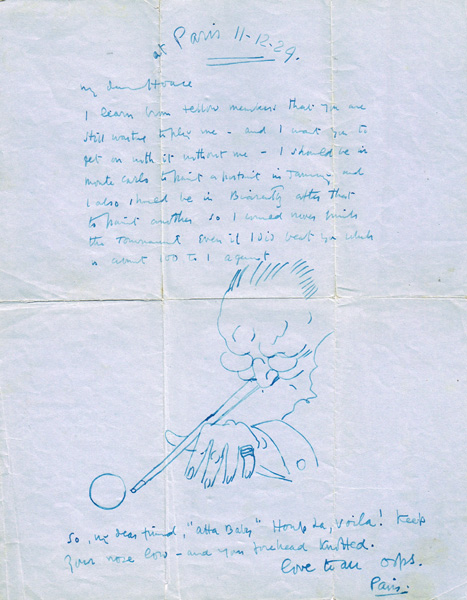 at Paris 11-12-29.
my dear Horace
I learn from fellow members that you are
still waiting to play me - and I want you to
get on with it without me - I should be in
monte Carlo to paint a portrait in January and
I also should be in Biarritz after that
to paint another so I could never finish
the Tournament Even if I did beat you which
is about 100 to 1 against
So, my dear friend, "atta Baby" Houp La, Voila! Keep
your nose low - and your forehead knotted.
love to all
Paris.